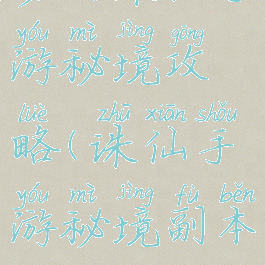 yóu mì jìng gōng
游秘境攻
lüè zhū xiān shǒu
略(诛仙手
yóu mì jìng fù běn
游秘境副本